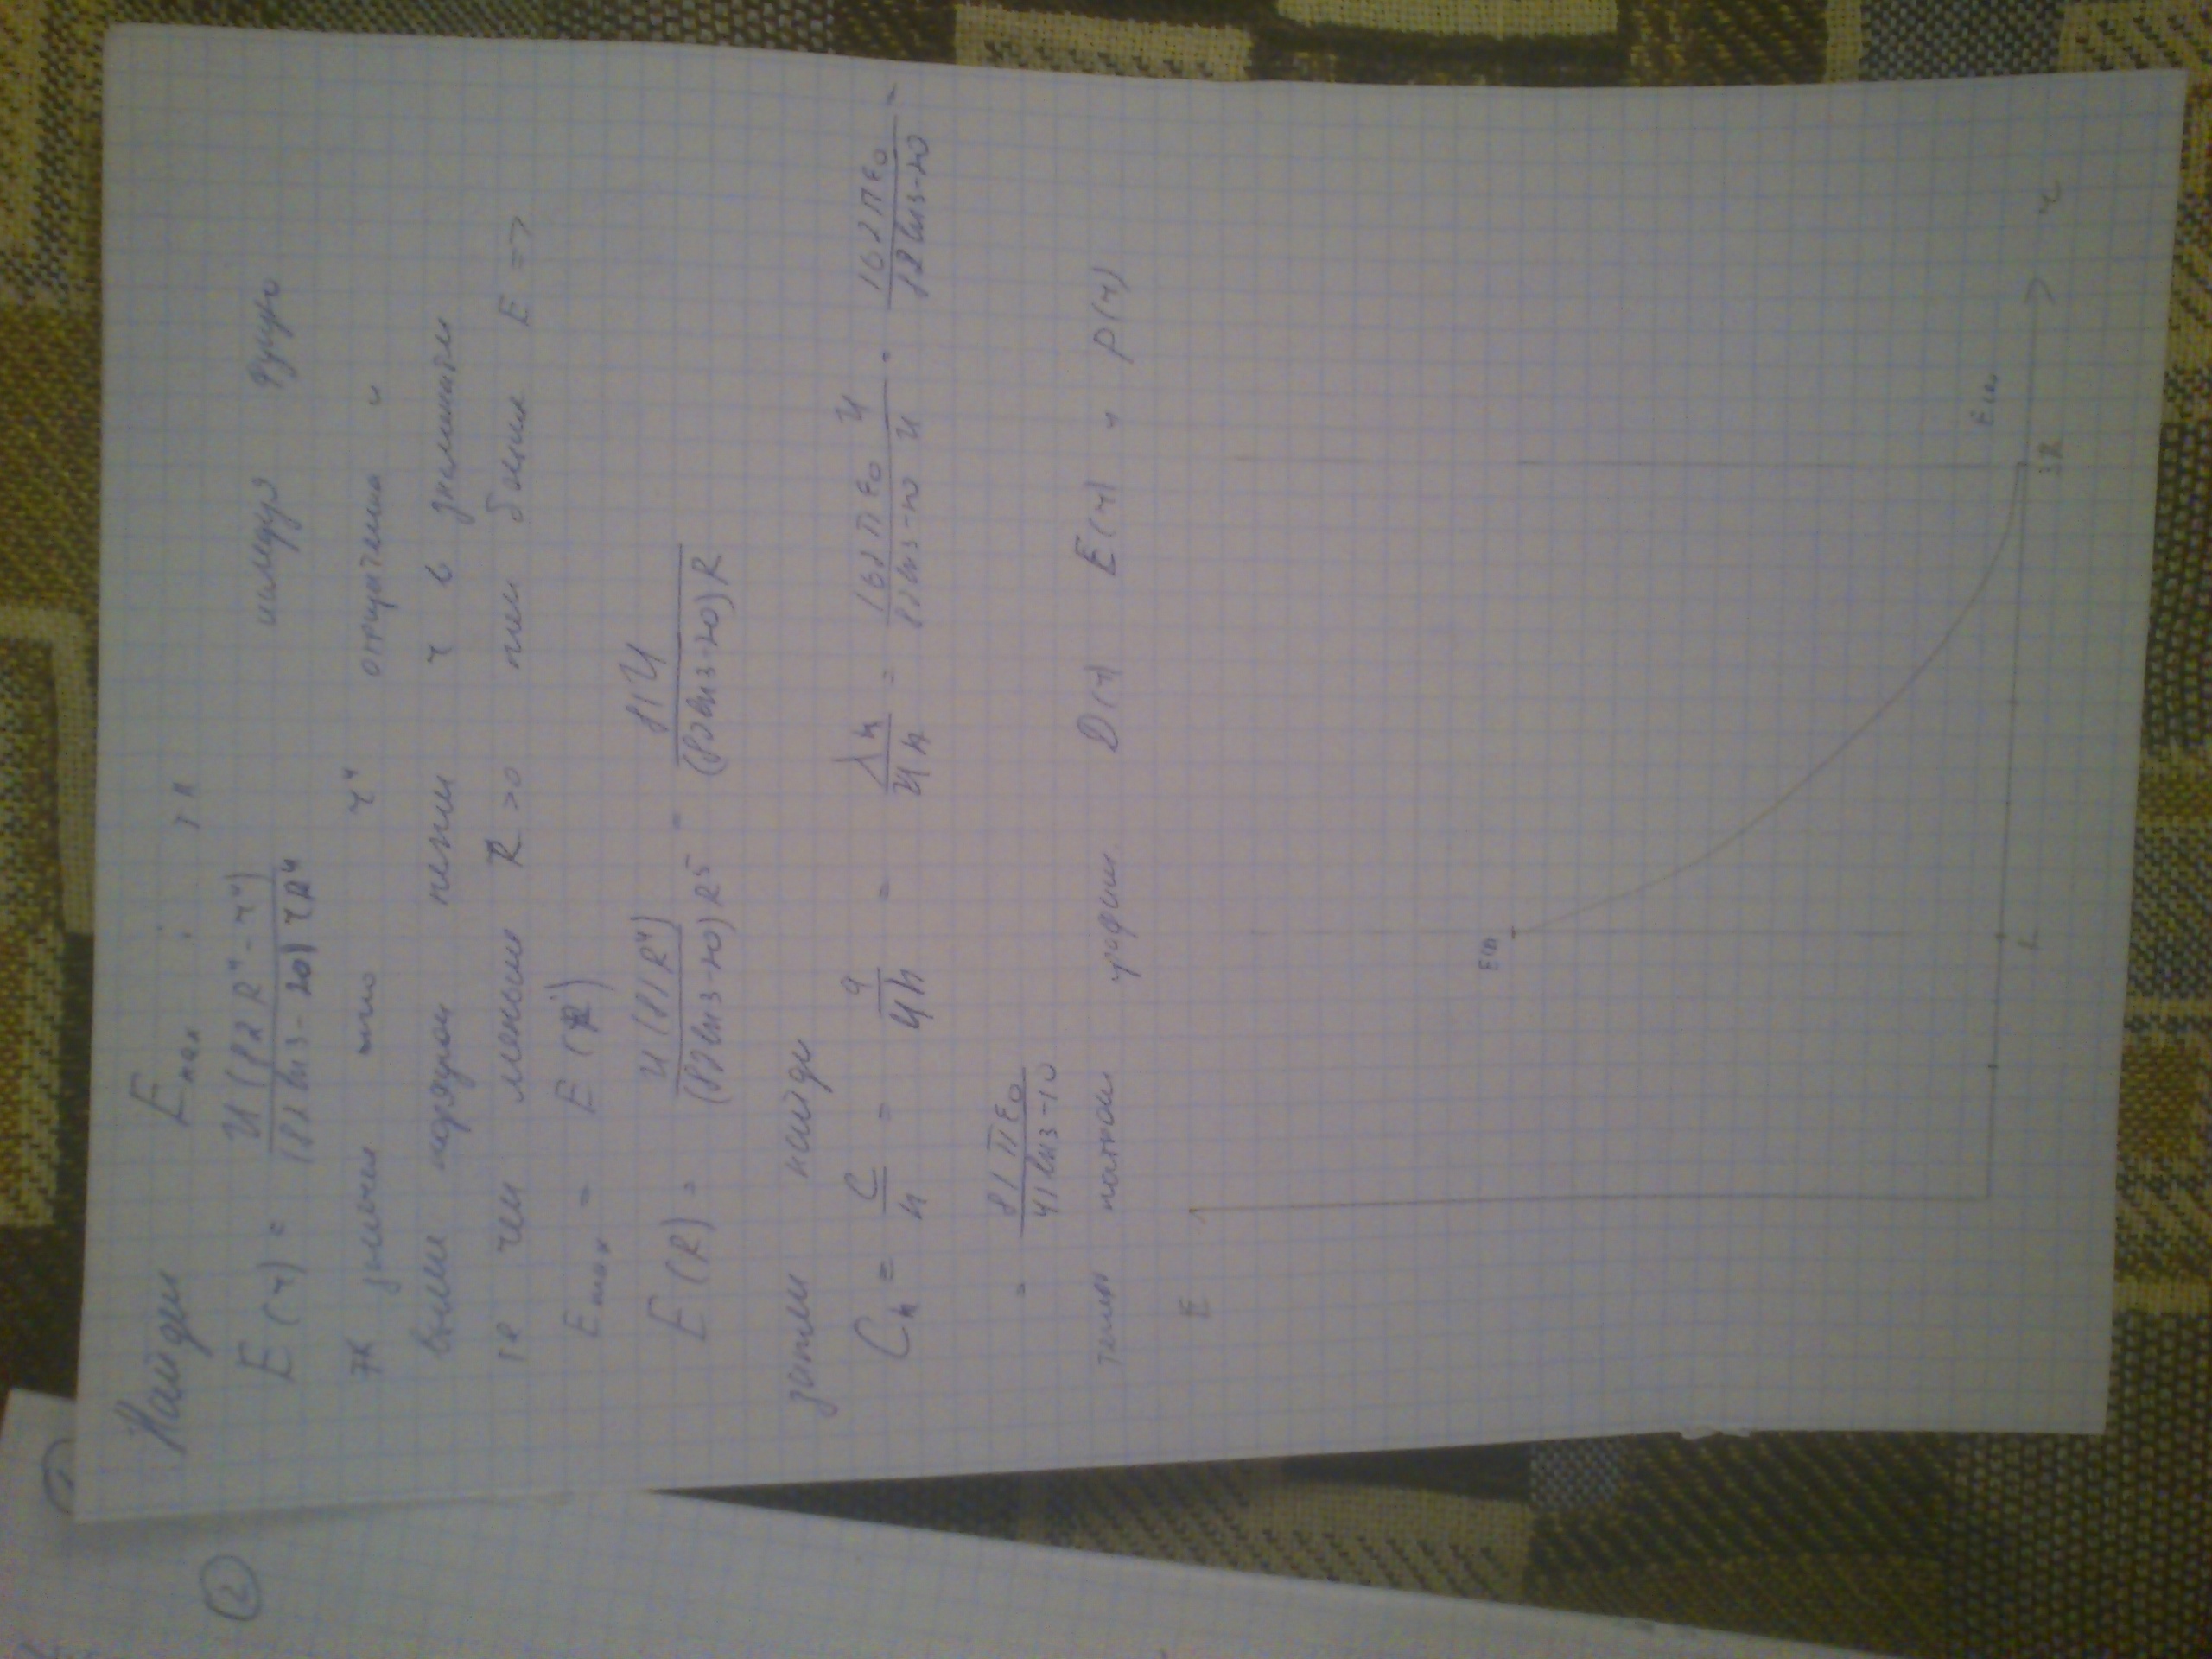 1
2
Найдем E max : т к
E(r) = U(82R⁴ - r⁴) / (82 ln3 - 20) r R⁴ исследуя функю
тк заметим что r⁴ отрицательна и
выше порядком нежели r в знаменателе
те чем меньше R >0 тем больше E =>
E max = E(R)
E(R) = U(81R⁴) / (82 ln3 - 20) R⁵ = 81U / (82 ln3 - 20) R
затем найдем
C h = C / h = q / Uh = λh / Uh = 162πε₀ U / 82 ln3 - 20 U = 162πε₀ / 82 ln3 - 20 =
= 81πε₀ / 41 ln3 - 10
теперь графики D(r) E(r) и ρ(r)
E
E(R)
R
3R
r